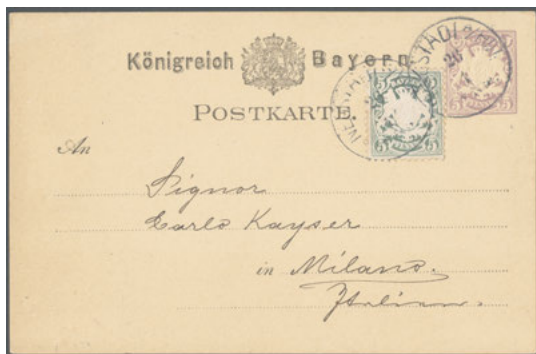 Königreich Bayern
POSTKARTE
An
Signor
Carlo Kayser
in Milano.
Italien.